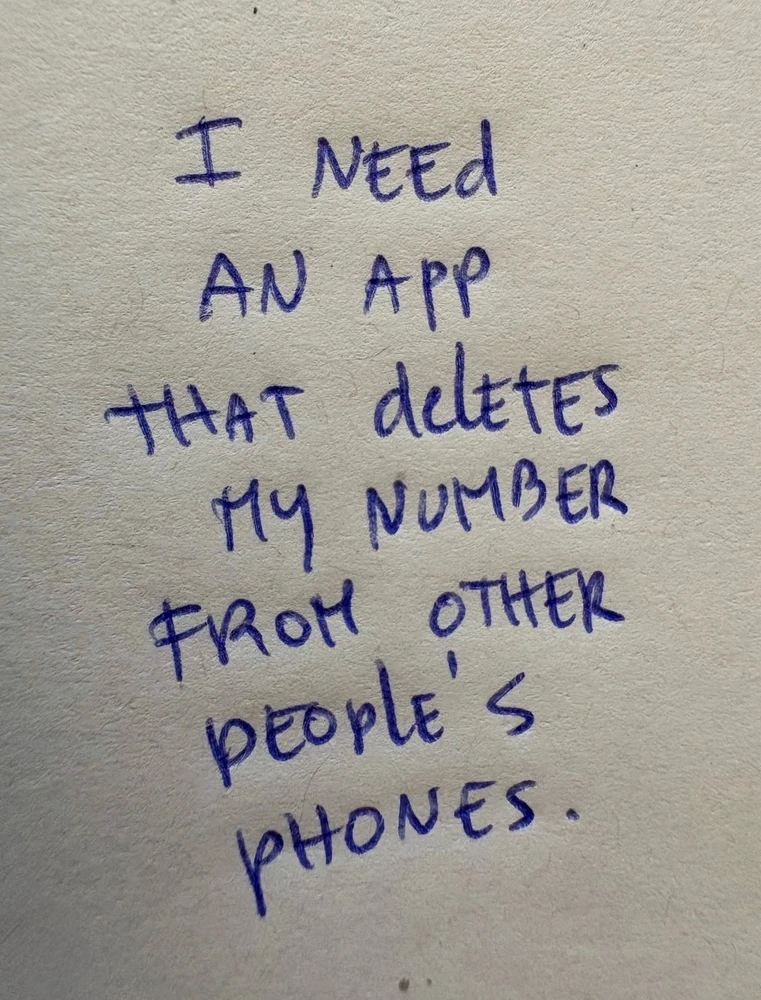 I NEEd
AN APP
THAT deletES
MY NUMBER
FROM OTHER
PEOPlE'S
PHONES.